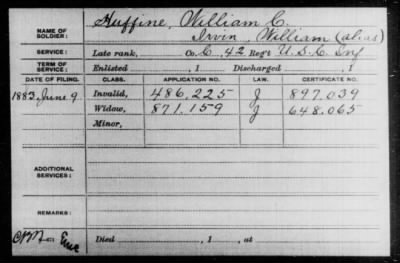 Huffine, William C.
NAME OF SOLDIER: Irvin, William (alias)
SERVICE: Late rank, Co. C, 42 Reg't U. S. C. Inf
TERM OF SERVICE: Enlisted , 1 Discharged , 1
DATE OF FILING. CLASS. APPLICATION NO. LAW. CERTIFICATE NO.
1883, June 9 Invalid, 486,225 J 897,039
Widow, 871,159 J 648,065
Minor,
ADDITIONAL SERVICES:
REMARKS:
Died , 1 , at